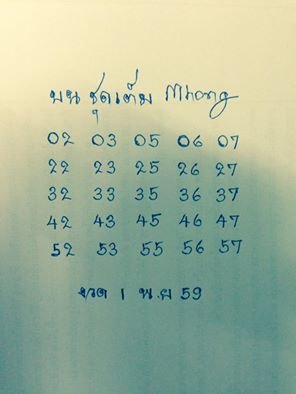 บน ชุดเต็ม Mhong
02 03 05 06 07
22 23 25 26 27
32 33 35 36 37
42 43 45 46 47
52 53 55 56 57
งวด 1 พ.ย 59